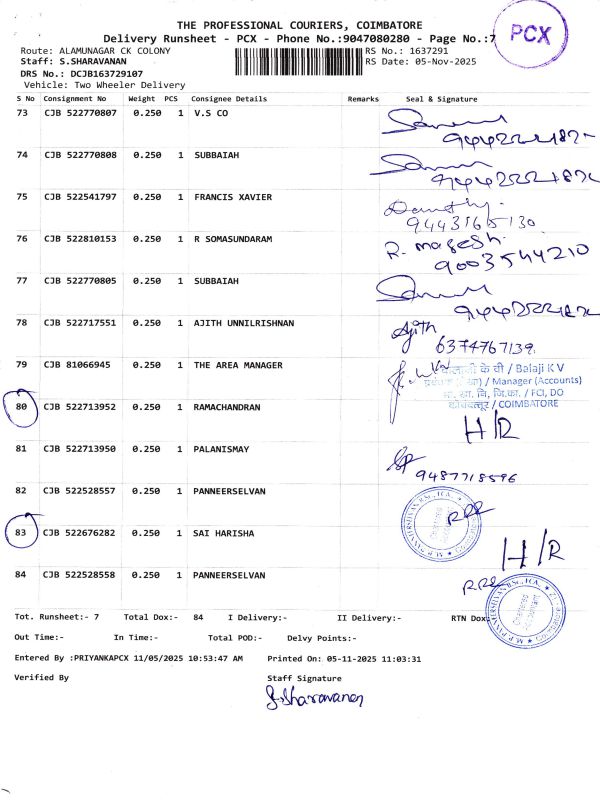 THE PROFESSIONAL COURIERS, COIMBATORE
Delivery Runsheet - PCX - Phone No.:9047080280 - Page No.:7
PCX
Route: ALAMUNAGAR CK COLONY
RS No.: 1637291
Staff: S.SHARAVANAN
RS Date: 05-Nov-2025
DRS No.: DCJB163729107
Vehicle: Two Wheeler Delivery
S No Consignment No Weight PCS Consignee Details Remarks Seal & Signature
73 CJB 522770807 0.250 1 V.S CO
74 CJB 522770808 0.250 1 SUBBAIAH
75 CJB 522541797 0.250 1 FRANCIS XAVIER
9443165130
76 CJB 522810153 0.250 1 R SOMASUNDARAM R. magesh.
9003544210
77 CJB 522770805 0.250 1 SUBBAIAH
78 CJB 522717551 0.250 1 AJITH UNNILRISHNAN Ajith
6374767139
79 CJB 81066945 0.250 1 THE AREA MANAGER
बालाजी के वी / Balaji K V
/ Manager (Accounts)
/ FCI, DO
कोयंबत्तूर / COIMBATORE
80 CJB 522713952 0.250 1 RAMACHANDRAN H/R
81 CJB 522713950 0.250 1 PALANISMAY
9487718596
82 CJB 522528557 0.250 1 PANNEERSELVAN
Chartered Accountant
83 CJB 522676282 0.250 1 SAI HARISHA H/R
84 CJB 522528558 0.250 1 PANNEERSELVAN
Chartered Accountant
Tot. Runsheet:- 7 Total Dox:- 84 I Delivery:- II Delivery:- RTN Dox:
Out Time:- In Time:- Total POD:- Delvy Points:-
Entered By :PRIYANKAPCX 11/05/2025 10:53:47 AM Printed On: 05-11-2025 11:03:31
Verified By Staff Signature
S.Sharavanan